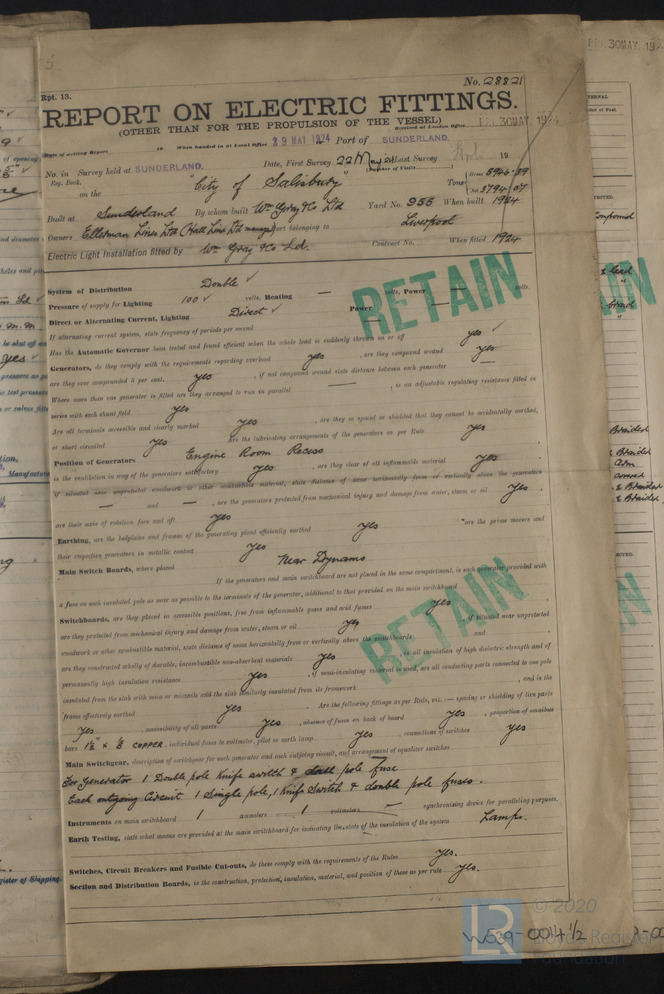 No. 28821
Rpt. 13.
REPORT ON ELECTRIC FITTINGS.
(OTHER THAN FOR THE PROPULSION OF THE VESSEL)
Received at London Office FRI. 30 MAY. 1924
Date of writing Report 19 When handed in at Local Office 29 MAY 1924 Port of SUNDERLAND.
No. in Survey held at SUNDERLAND. Date, First Survey 22 May 24 Last Survey 19
Reg. Book. (Number of Visits
on the "City of Salisbury" Tons Gross 5946.89 Net 3794.07
Built at Sunderland By whom built Wm Gray & Co Ltd Yard No. 956 When built 1924
Owners Ellerman Lines Ltd (Hall Line Ltd managers) Port belonging to Liverpool
Electric Light Installation fitted by Wm Gray & Co Ld. Contract No. When fitted 1924
System of Distribution Double ✓
Pressure of supply for Lighting 100 ✓ volts, Heating — volts, Power — volts.
Direct or Alternating Current, Lighting Direct ✓ Power —
If alternating current system, state frequency of periods per second
Has the Automatic Governor been tested and found efficient when the whole load is suddenly thrown on or off yes ✓
Generators, do they comply with the requirements regarding overload yes , are they compound wound yes
are they over compounded 5 per cent. yes , if not compound wound state distance between each generator —
Where more than one generator is fitted are they arranged to run in parallel — , is an adjustable regulating resistance fitted in
series with each shunt field yes
Are all terminals accessible and clearly marked yes , are they so spaced or shielded that they cannot be accidentally earthed,
or short circuited yes Are the lubricating arrangements of the generators as per Rule yes
Position of Generators Engine Room Recess
is the ventilation in way of the generators satisfactory yes , are they clear of all inflammable material yes
if situated near unprotected woodwork or other combustible material, state distance of same horizontally from or vertically above the generators
— and — , are the generators protected from mechanical injury and damage from water, steam or oil yes
are their axis of rotation fore and aft yes
Earthing, are the bedplates and frames of the generating plant efficiently earthed yes are the prime movers and
their respective generators in metallic contact yes
Main Switch Boards, where placed Near Dynamo
If the generators and main switchboard are not placed in the same compartment, is each generator provided with
a fuse on each insulated pole as near as possible to the terminals of the generator, additional to that provided on the main switchboard
Switchboards, are they placed in accessible positions, free from inflammable gases and acid fumes yes
are they protected from mechanical injury and damage from water, steam or oil yes , if situated near unprotected
woodwork or other combustible material, state distance of same horizontally from or vertically above the switchboards and
are they constructed wholly of durable, incombustible non-absorbent materials yes , is all insulation of high dielectric strength and of
permanently high insulation resistance yes , if semi-insulating material is used, are all conducting parts connected to one pole
insulated from the slab with mica or micanite and the slab similarly insulated from its framework , and is the
frame effectively earthed yes Are the following fittings as per Rule, viz.:— spacing or shielding of live parts
yes , accessibility of all parts yes , absence of fuses on back of board yes , proportion of omnibus
bars 1½" x ⅛ COPPER , individual fuses to voltmeter, pilot or earth lamp yes , connections of switches yes
Main Switchgear, description of switchgear for each generator and each outgoing circuit, and arrangement of equalizer switches
For Generator 1 Double pole knife switch & double pole fuse
Each outgoing Circuit 1 Single pole, 1 Knife Switch & double pole fuses.
Instruments on main switchboard 1 ammeters 1 voltmeters — synchronising device for paralleling purposes.
Earth Testing, state what means are provided at the main switchboard for indicating the state of the insulation of the system Lamps.
Switches, Circuit Breakers and Fusible Cut-outs, do these comply with the requirements of the Rules yes.
Section and Distribution Boards, is the construction, protection, insulation, material, and position of these as per rule yes.
RETAIN
RETAIN
W539-0014 1/2
© 2020
Lloyd's Register
Foundation